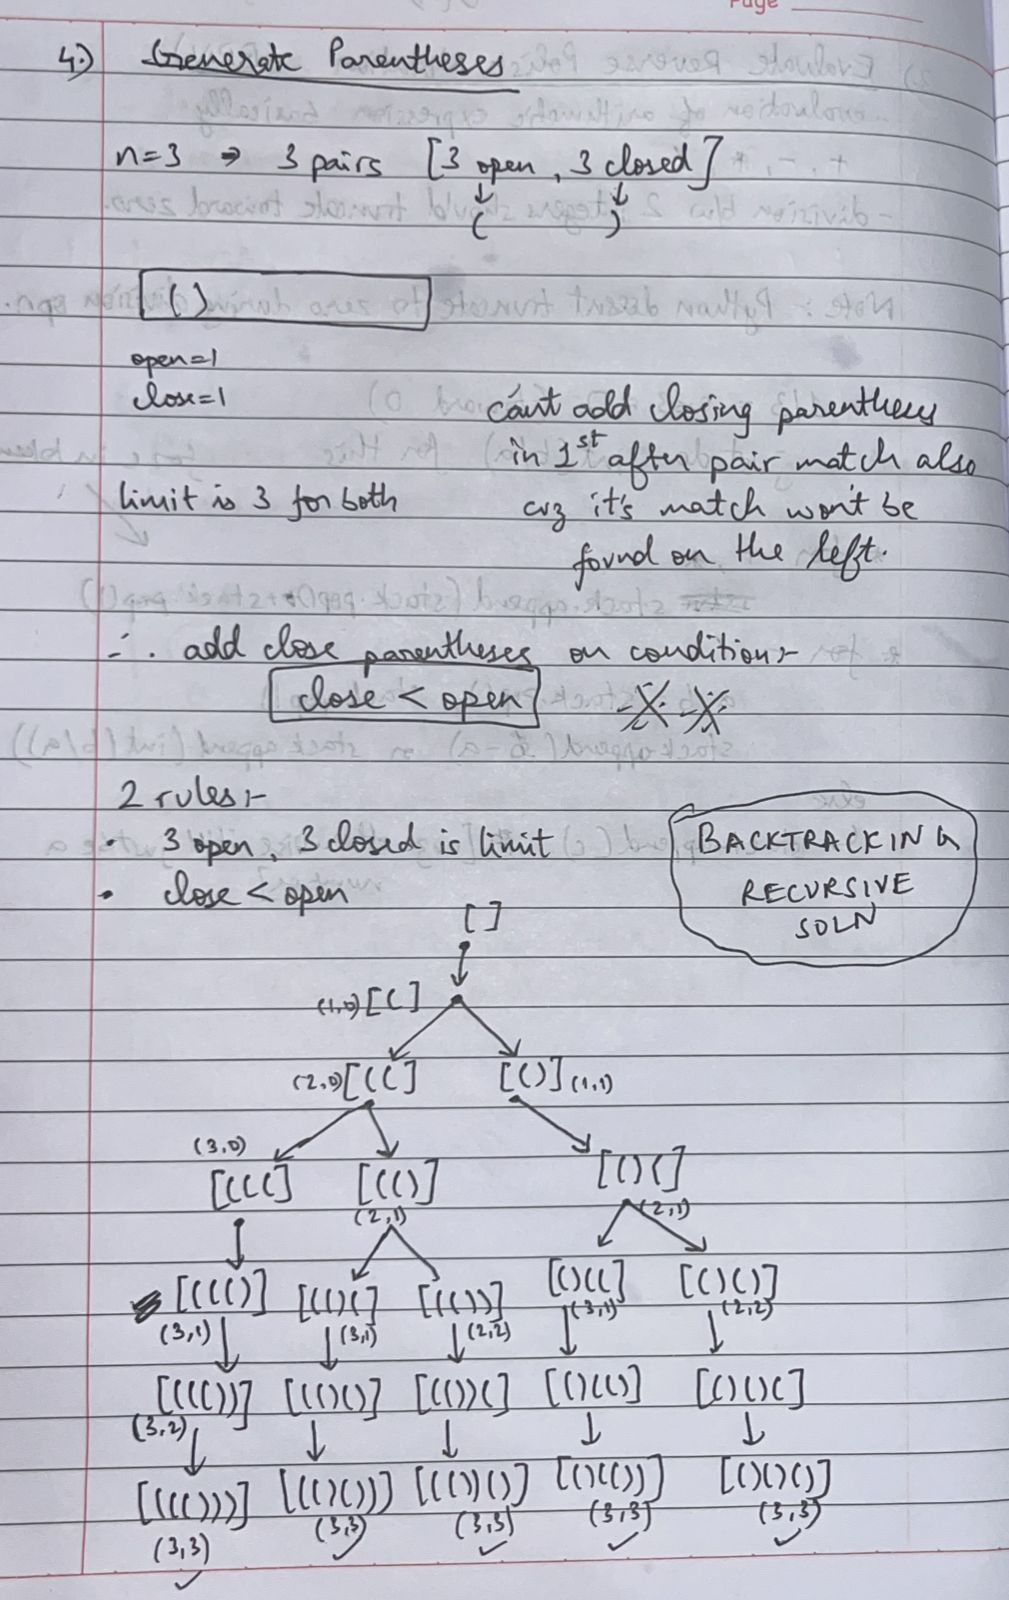 Page
4.) Generate Parentheses
n=3 ⇒ 3 pairs [3 open, 3 closed]
↓ ↓
( )
()
open=1
close=1
limit is 3 for both
can't add closing parentheses
in 1st after pair match also
cuz it's match won't be
found on the left.
∴ add close parentheses on condition:-
close < open
2 rules:-
• 3 open, 3 closed is limit
• close < open
BACKTRACKING
RECURSIVE
SOLN
[]
(1,0) [(]
(2,0) [((] [()] (1,1)
(3,0)
[(((] [(()] [()(]
(2,1) (2,1)
[((()] [(()(] [(())] [()((] [()()]
(3,1) (3,1) (2,2) (3,1) (2,2)
[((())] [(()()] [(())(] [()(()] [()()(]
(3,2)
[((()))] [(()())] [(())()] [()(())] [()()()]
(3,3) (3,3) (3,3) (3,3) (3,3)